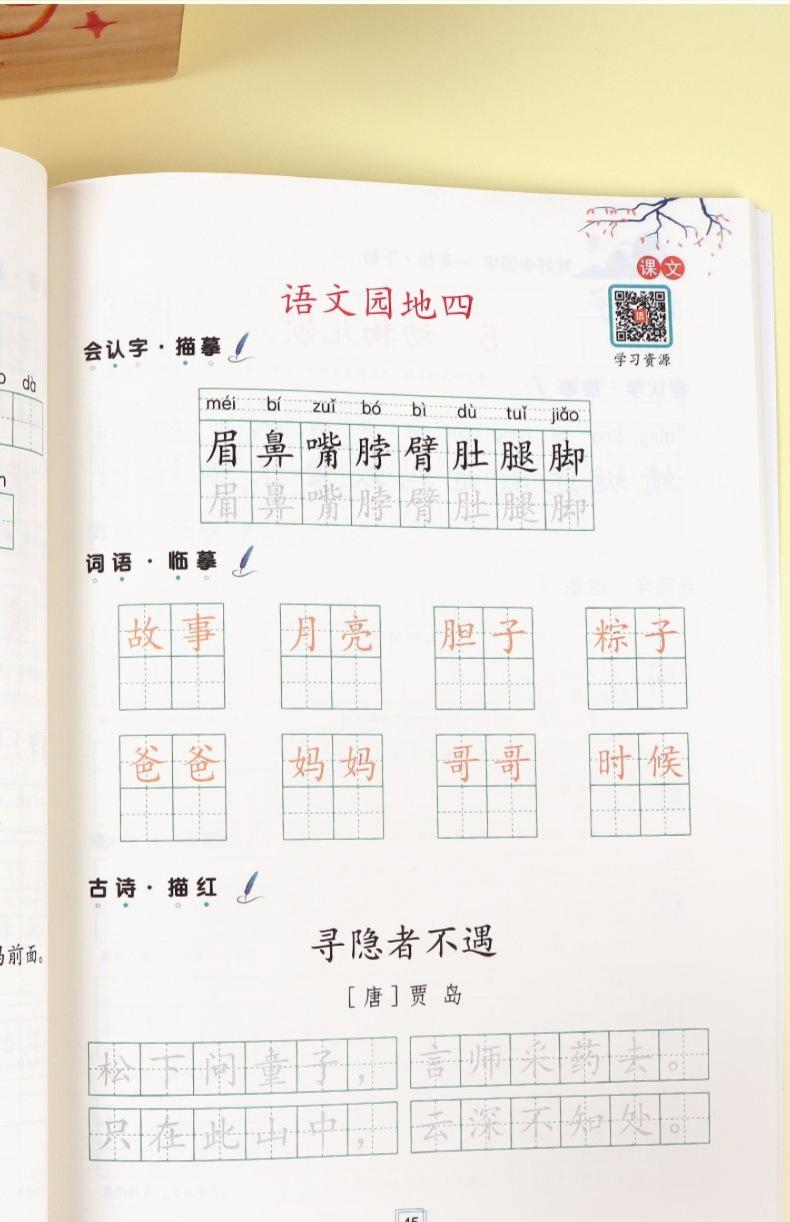 课文
学习资源
语文园地四
会认字·描摹
méi bí zuǐ bó bì dù tuǐ jiǎo
眉鼻嘴脖臂肚腿脚
眉鼻嘴脖臂肚腿脚
词语·临摹
故事 月亮 胆子 粽子
爸爸 妈妈 哥哥 时候
古诗·描红
寻隐者不遇
[唐]贾 岛
松下问童子，言师采药去。
只在此山中，云深不知处。
dà
前面。